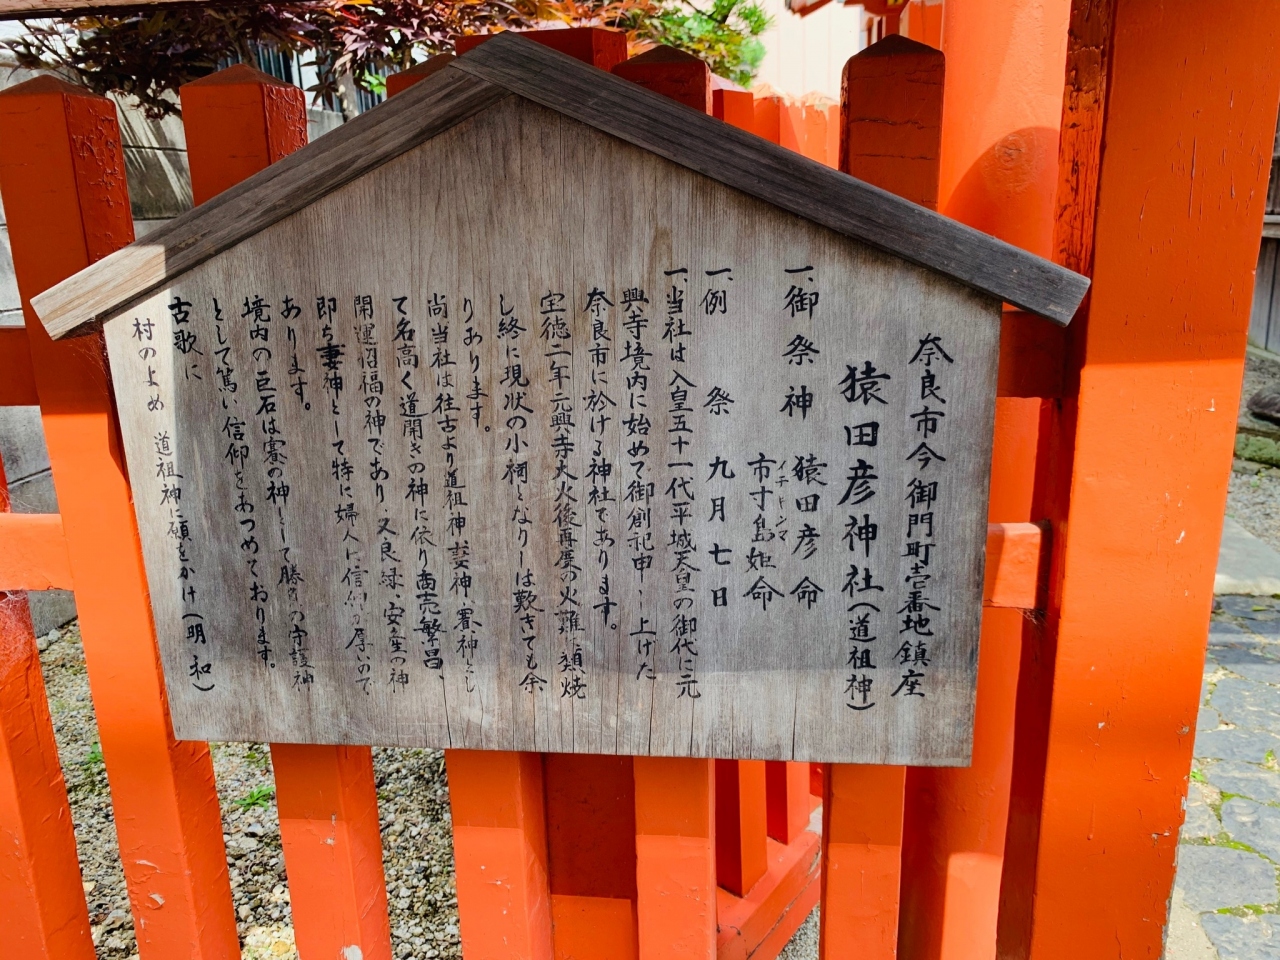 奈良市今御門町壱番地鎮座
猿田彦神社(道祖神)
一、御祭神 猿田彦命
イチキシマ
市寸島姫命
一、例 祭 九月七日
一、当社は人皇五十一代平城天皇の御代に元
興寺境内に始めて御創祀申し上げた
奈良市に於ける神社であります。
宝徳二年元興寺大火後再度の火難に類焼
し終に現状の小祠となりしは歎きても余
りあります。
尚当社は往古より道祖神
て名高く道開きの神に依り商売繁昌、
開運招福の神であり、又良縁、安産の神
即ち妻神として特に婦人に信仰が厚いので
あります。
境内の巨石は賽の神として勝負の守護神
として篤い信仰をあつめております。
古歌に
村のよめ 道祖神に願をかけ(明和)